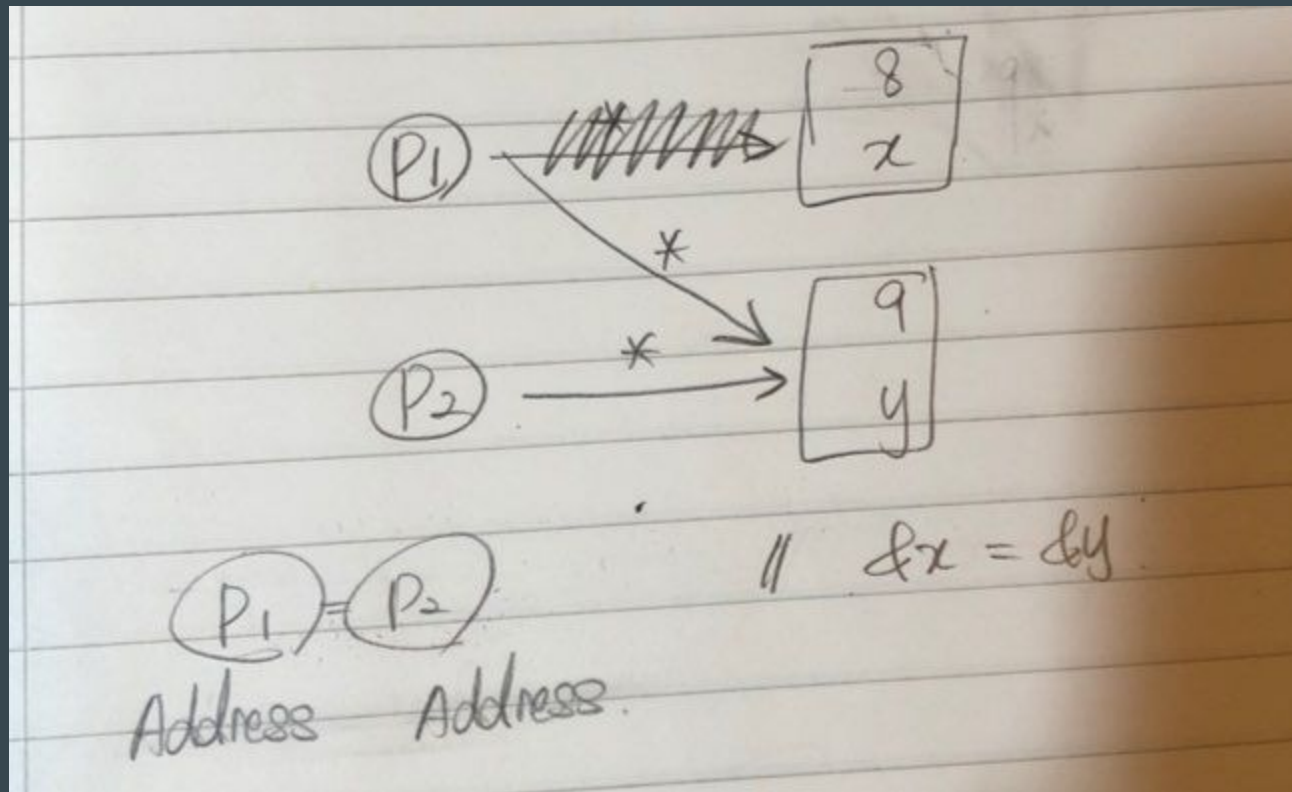 P1 8
x
*
9
P2 * y
P1 = P2 // &x = &y
Address Address.